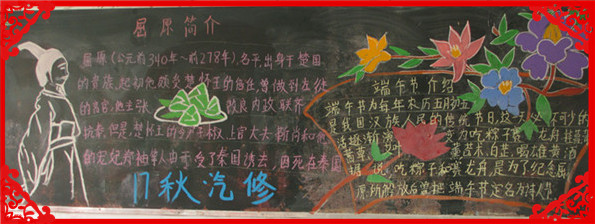 屈原简介
屈原(公元前340年~前278年),名平,出身于楚国
的贵族,起初他颇受楚怀王的信任,曾做到左徒
的高官,他主张 改良内政,联齐
抗秦,但是,楚怀王的令尹子椒、上官大夫靳尚和他
的宠妃郑袖等人,由于受了秦国
17秋汽修
端午节介绍
端午节为每年农历五月初五
是我国汉族人民的传统节日,这天必不可少的
活动逐渐演 为吃粽子 龙舟 挂菖蒲
白芷,喝雄黄酒
吃粽子和赛龙舟,是为了纪念屈
原,所以解放后曾把端午节定名为诗人节